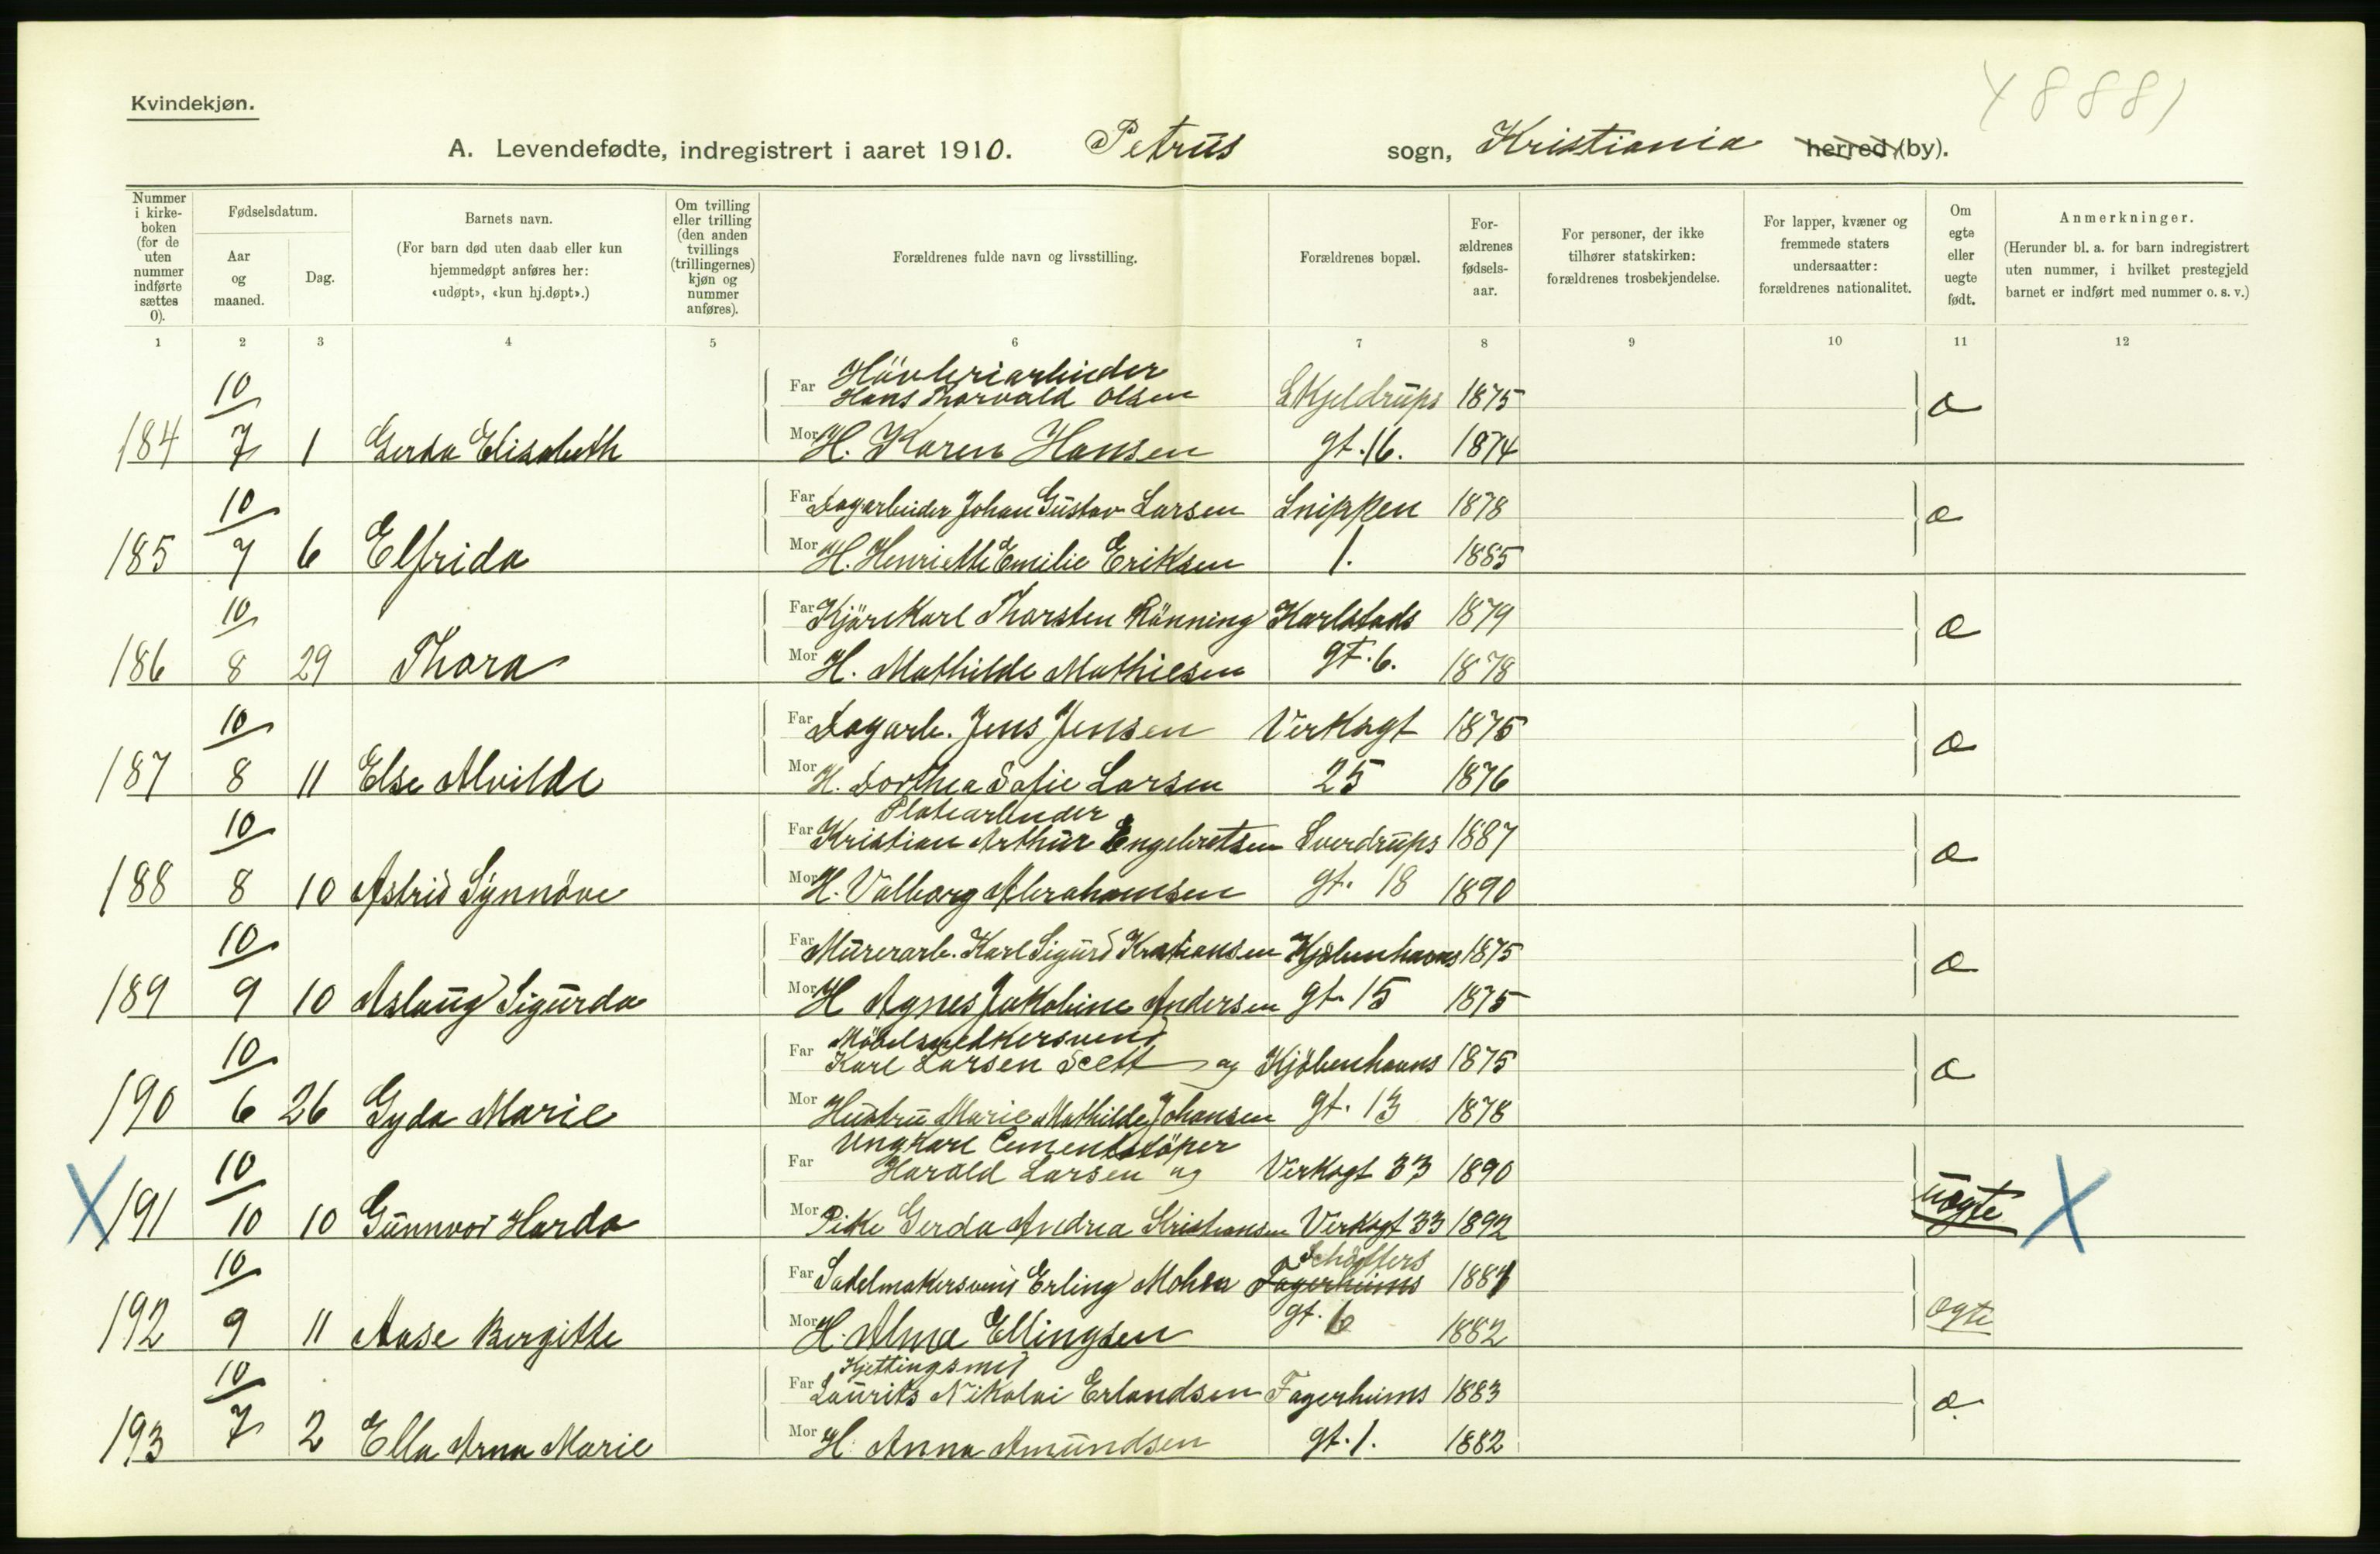 Kvindekjøn.
48881
A. Levendefødte, indregistrert i aaret 1910. Petrus sogn, Kristiania herred (by).
Nummer i kirke-boken (for de uten nummer indførte sættes 0).
Fødselsdatum.
Aar og maaned.
Dag.
Barnets navn.
(For barn død uten daab eller kun hjemmedøpt anføres her: «udøpt», «kun hj.døpt».)
Om tvilling eller trilling (den anden tvillings (trillingernes) kjøn og nummer anføres).
Forældrenes fulde navn og livsstilling.
Forældrenes bopæl.
For-ældrenes fødsels-aar.
For personer, der ikke tilhører statskirken: forældrenes trosbekjendelse.
For lapper, kvæner og fremmede staters undersaatter: forældrenes nationalitet.
Om egte eller uegte født.
Anmerkninger.
(Herunder bl. a. for barn indregistrert uten nummer, i hvilket prestegjeld barnet er indført med nummer o. s. v.)
1 2 3 4 5 6 7 8 9 10 11 12
Høvleriarbeider
10 Far Hans Thorvald Olsen Skjeldrups 1875 æ
184 7 1 Gerda Elisabeth Mor H. Karen Hansen gt. 16. 1874
10 Far Dagarbeider Johan Gustav Larsen Snippen 1878 æ
185 7 6 Elfrida Mor H. Henriette Emilie Eriksen 1. 1885
10 Far Kjørekarl Thorsten Rønning Karlstads 1879 æ
186 8 29 Thora Mor H. Mathilde Mathiesen gt. 6. 1878
10 Far Dagarb. Jens Jensen Verksgt 1875 æ
187 8 11 Else Alvilde Mor H. Dorthea Sofie Larsen 25 1876
Platearbeider
10 Far Kristian Arthur Engebretsen Sverdrups 1887 æ
188 8 10 Astrid Synnøve Mor H. Valborg Abrahamsen gt. 18 1890
10 Far Murerarb. Karl Sigurd Kristiansen Kjøbenhavns 1875 æ
189 9 10 Aslaug Sigurda Mor H Agnes Jakobine Andersen gt. 15 1875
Møbelsnedkersvend
10 Far Karl Larsen og Kjøbenhavns 1875 æ
190 6 26 Gyda Marie Mor Hustru Marie Mathilde Johansen gt. 13 1878
Ungkarl Cementstøper
10 Far Harald Larsen og Verksgt 33 1890
X 191 10 10 Gunnvor Harda Mor Pike Gerda Andrea Kristiansen Verksgt 33 1892 uægte X
Schøffers
10 Far Sadelmakersvend Erling Mohn Fagerheims 1884
192 9 11 Aase Bergitte Mor H. Alma Ellingsen gt. 6 1882 ægte
Kjettingsmed
10 Far Laurits Nikolai Erlandsen Fagerheims 1883 æ
193 7 2 Ella Arna Marie Mor H. Anna Amundsen gt. 1. 1882